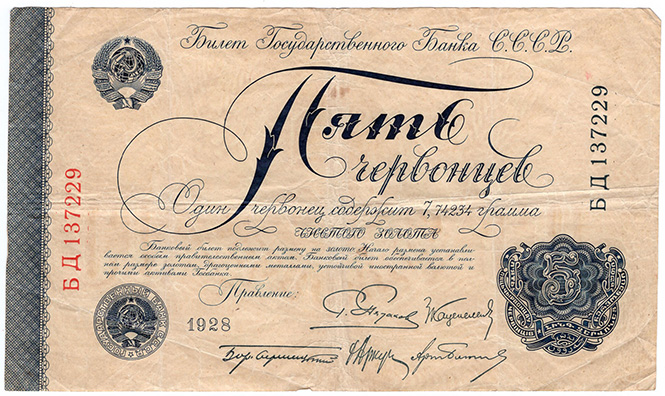 Билет Государственного Банка С.С.С.Р.
Пять
червонцев
Один червонец содержит 7,74234 грамма
чистого золота
Банковый билет подлежит размену на золото. Начало размена устанавли-
вается особым правительственным актом. Банковый билет обеспечивается в пол-
ном размере золотом, драгоценными металлами, устойчивой иностранной валютой и
прочими активами Госбанка.
Правление:
1928
БД 137229
БД 137229
5